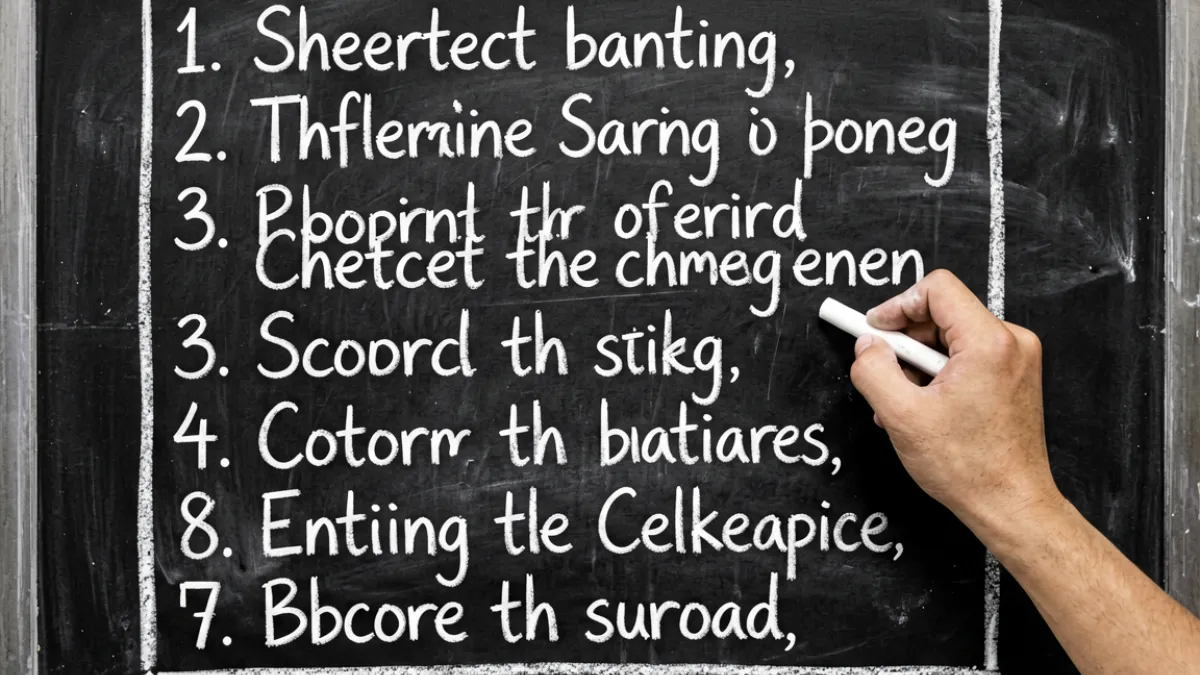 1. Sheertect banting,
2. Thflemine Saring io poneg
3. Pboopirnt thr oferird
Chetcet the chmegenen
3. Scoord th stikg,
4. Cotorm th biatiares,
8. Entiing tle Celkeapice,
7. Bbcore th suroad,